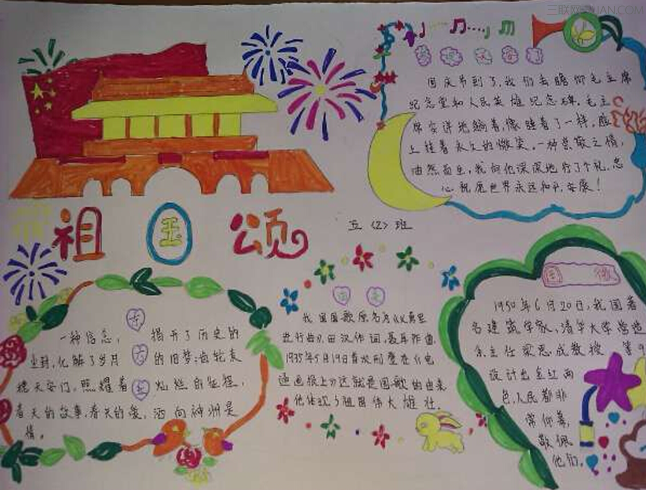 国庆节到了,我们去瞻仰毛主席
纪念堂和人民英雄纪念碑,毛主
席安详地躺着,像睡着了一样,脸
上挂着永久的微笑,一种崇敬之情,
油然而生,我向他深深地行了个礼,忠
心祝愿世界永远和平,安康!
祖国颂
五〈2〉班
国徽
1950年6月20日,我国著
名建筑学家,清华大学营造
系主任梁思成教授 等9
设计出金红两
色,人民都非
常仰慕,
敬佩
他们。
国歌
我国国歌原名为《义勇军
进行曲》,田汉作词,聂耳作曲
1935年5月19日首次刊登在《电
通画报上》这就是国歌的由来
他体现了祖国伟大雄壮。
一种信念, 揭开了历史的
尘封,化解了岁月 的旧梦:齿轮麦
穗天安门,照耀着 灿烂的征程,
春天的故事,春天的爱,洒向神州是
情。